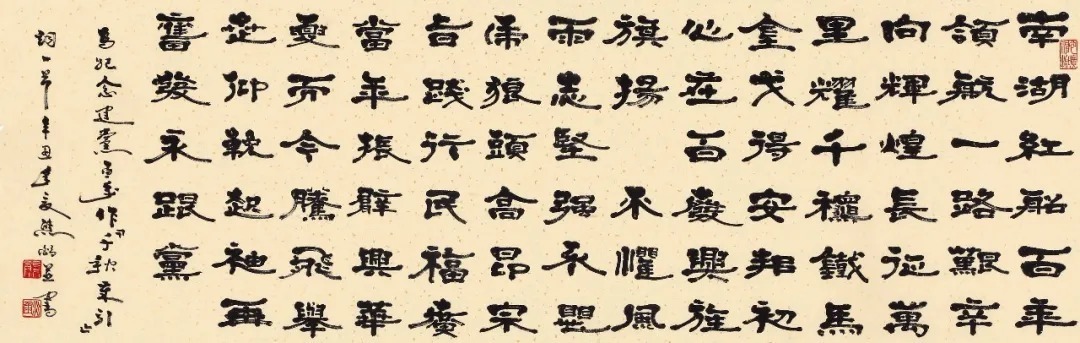 南湖紅船百年
領航一路艱辛
向輝煌長征萬
里耀千穰鐵馬
金戈得安邦初
心在百廢興旌
旗揚 不懼風
雨志堅强不
虎狼頭高昂宗
旨踐行民福廣
當年振臂興華
夏而今騰飛舉
世仰起袖再
奮發永跟黨
為紀念建黨百年作千秋歲引
詞一首辛丑年夏熊並書